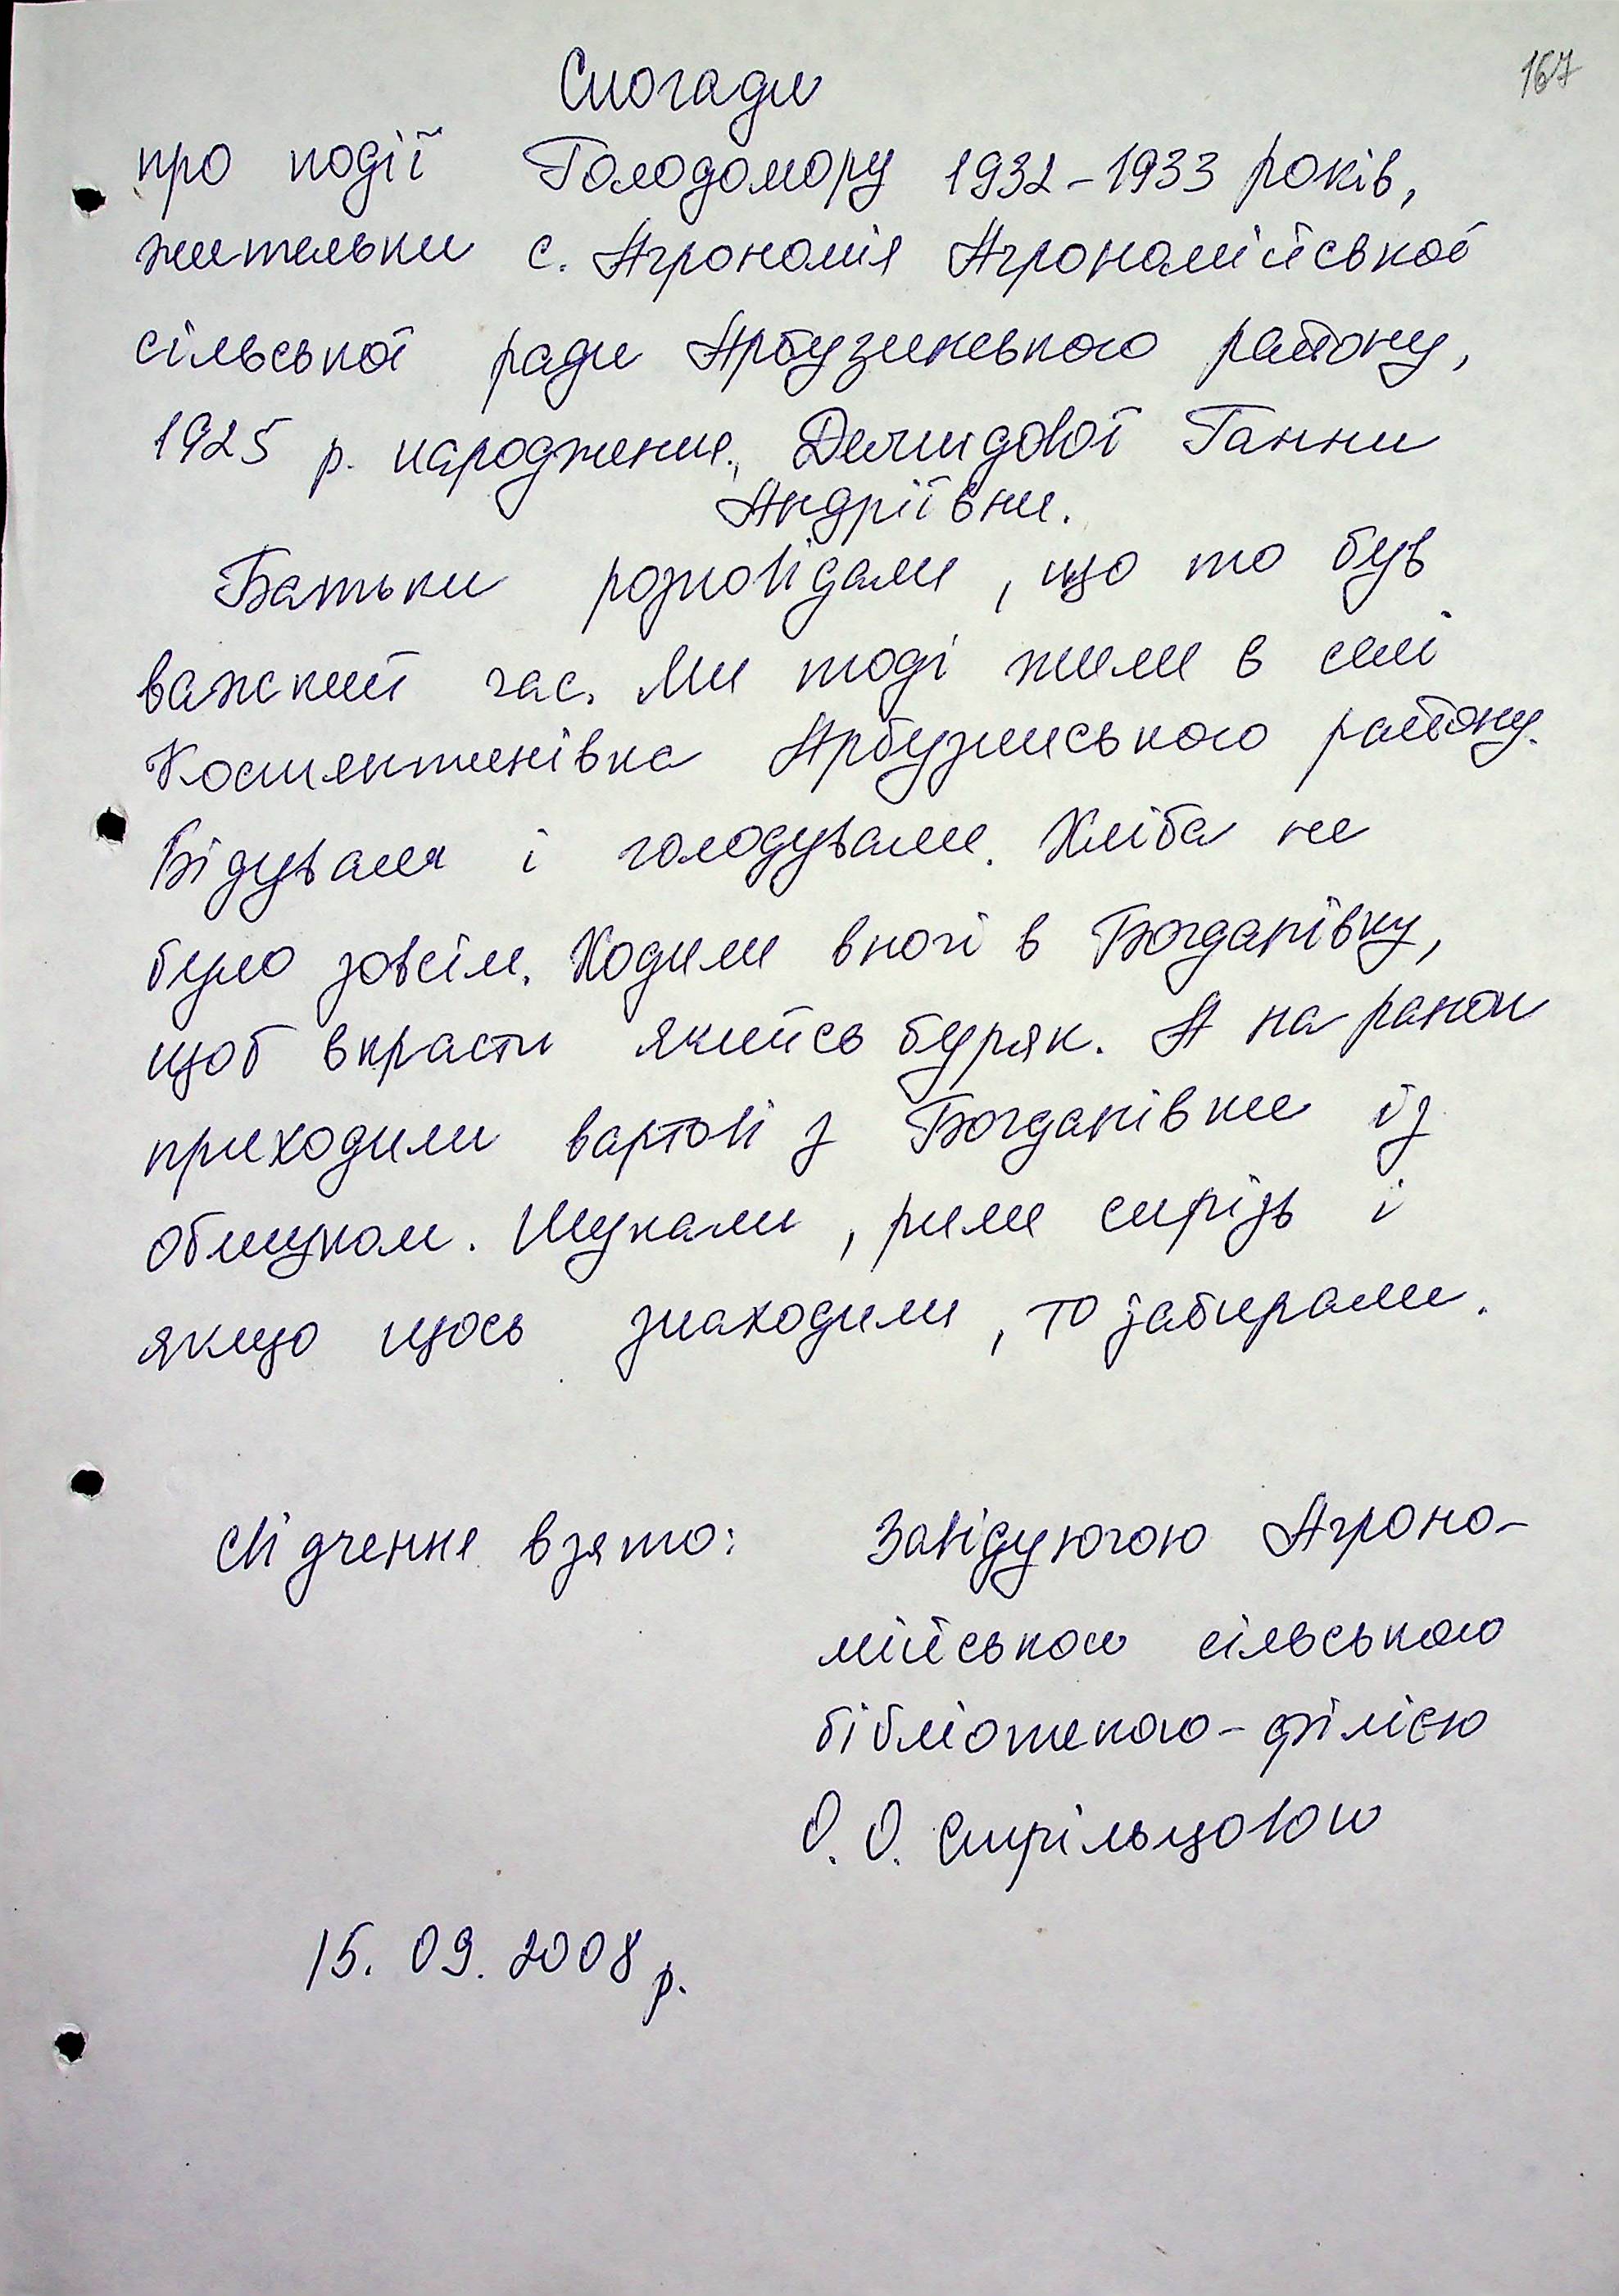 167
Спогади
про події Голодомору 1932-1933 років,
жительки с. Агрономія Агрономійської
сільської ради Арбузинського району,
1925 р. народження, Демидової Ганни
Андріївни.
Батьки розповідали, що то був
важкий час. Ми тоді жили в селі
Костянтинівка Арбузинського району.
Бідували і голодували. Хліба не
було зовсім. Ходили вночі в Богданівку,
щоб вкрасти якийсь буряк. А на ранок
приходили вартові з Богданівки із
обшуком. Шукали, рили скрізь і
якщо щось знаходили, то забирали.
Свідчення взято: Завідуючою Агроно-
мійською сільською
бібліотекою-філією
О. О. Стрільцовою
15. 09. 2008 р.